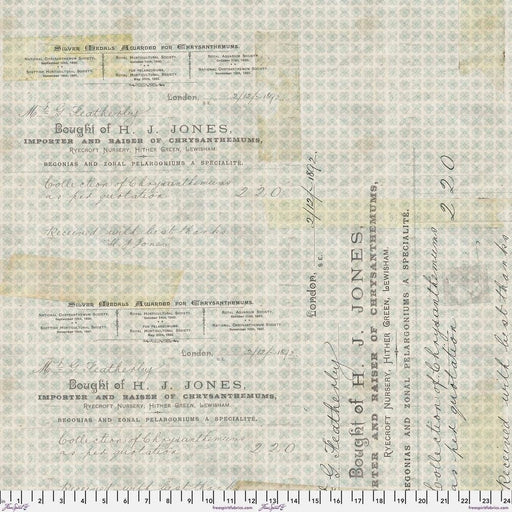 Silver Medals Awarded for Chrysanthemums.
National Chrysanthemum Society. Royal Horticultural Society. Royal Aquarium Society.
Scottish Horticultural Society. For Pelargoniums, Royal Horticultural Society. National Chrysanthemum Society.
London, S.E. 2/12/1892
Mr G Featherby
Bought of H. J. JONES,
IMPORTER AND RAISER OF CHRYSANTHEMUMS,
Ryecroft Nursery, Hither Green, Lewisham.
BEGONIAS AND ZONAL PELARGONIUMS A SPECIALITÉ.
Collection of Chrysanthemums
as per quotation 2 2 0
Received with best thanks
H. J. Jones
Silver Medals Awarded for Chrysanthemums.
National Chrysanthemum Society. Royal Horticultural Society. Royal Aquarium Society.
Scottish Horticultural Society. For Pelargoniums, Royal Horticultural Society. National Chrysanthemum Society.
London, 2/12/1892
Mr G Featherby
Bought of H. J. JONES,
IMPORTER AND RAISER OF CHRYSANTHEMUMS,
Ryecroft Nursery, Hither Green, Lewisham.
BEGONIAS AND ZONAL PELARGONIUMS A SPECIALITÉ.
Collection of Chrysanthemums
as per quotation 2 2 0
Received with best thanks
London, S.E. 2/12/1892
G Featherby
Bought of H. J. JONES,
RTER AND RAISER OF CHRYSANTHEMUMS,
Ryecroft Nursery, Hither Green, Lewisham.
EGONIAS AND ZONAL PELARGONIUMS A SPECIALITÉ.
Collection of Chrysanthemums
as per quotation 2 2 0
Received with best thanks
0 1 2 3 4 5 6 7 8 9 10 11 12 13 14 15 16 17 18 19 20 21 22 23 24
FreeSpirit freespiritfabrics.com FreeSpirit freespiritfabrics.com